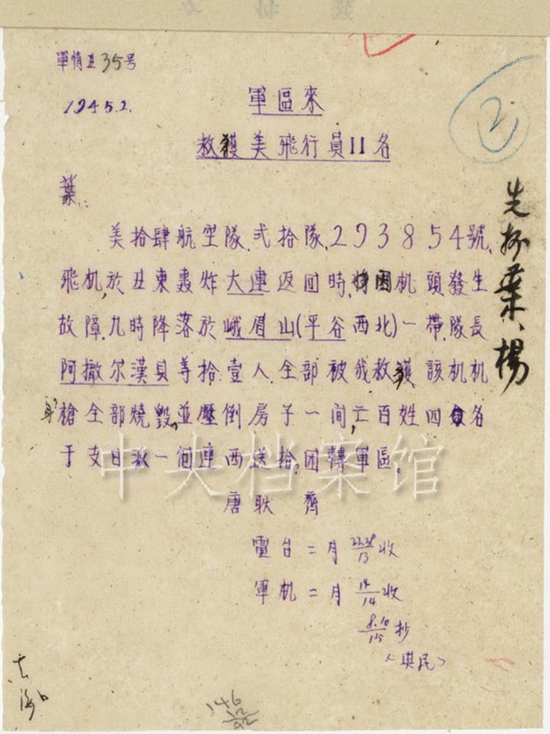 軍情直35号
1945.2.
軍區來
救獲美飛行員11名
葉:
美拾肆航空隊,弍拾隊,293854號
飛机,於丑東轟炸大連返回時,因机頭發生
故障,九時降落於峨眉山(平谷西北)一帶,隊長
阿撒尔漢具等拾壹人,全部被我救獲該机机
身、槍全部燒毀,並壓倒房子一間,亡百姓四名
于支日派一個連西送拾,团轉軍區。
唐耿 齊
電台二月 13 收
軍机二月 14 收
8.10/15 抄
先抄葉、楊
2
146
12
92
中央档案馆